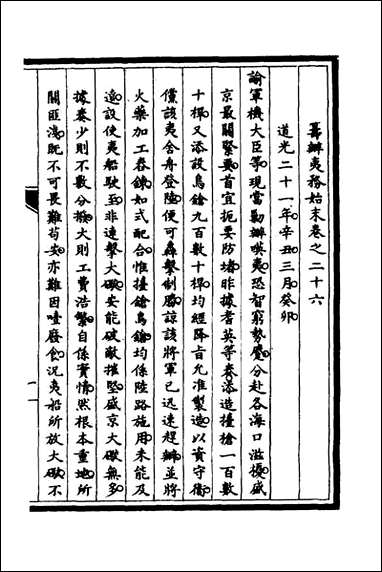 籌辦夷務始末卷之二十六
道光二十一年辛丑三月癸卯
諭軍機大臣等現當勦辦嘆夷恐智窮勢蹙分赴各海口滋擾盛
京最關緊要首宜扼要防堵昨據耆英等奏添造擡槍一百數
十桿又添設鳥鎗九百數十桿均經降旨允准製造以資守衛
儻該夷舍舟登陸便可轟擊制勝諒該將軍已迅速趕辦並將
火藥加工舂鎚如式配合惟擡鎗鳥鎗均係陸路施用未能及
遠設使夷船駛至非連擊大礮安能破敵摧堅盛京大礮無多
據奏少則不敷分撥大則工費浩繁自係實情然根本重地所
關匪淺既不可畏難苟安亦難因噎廢食況夷船所放大礮不
一